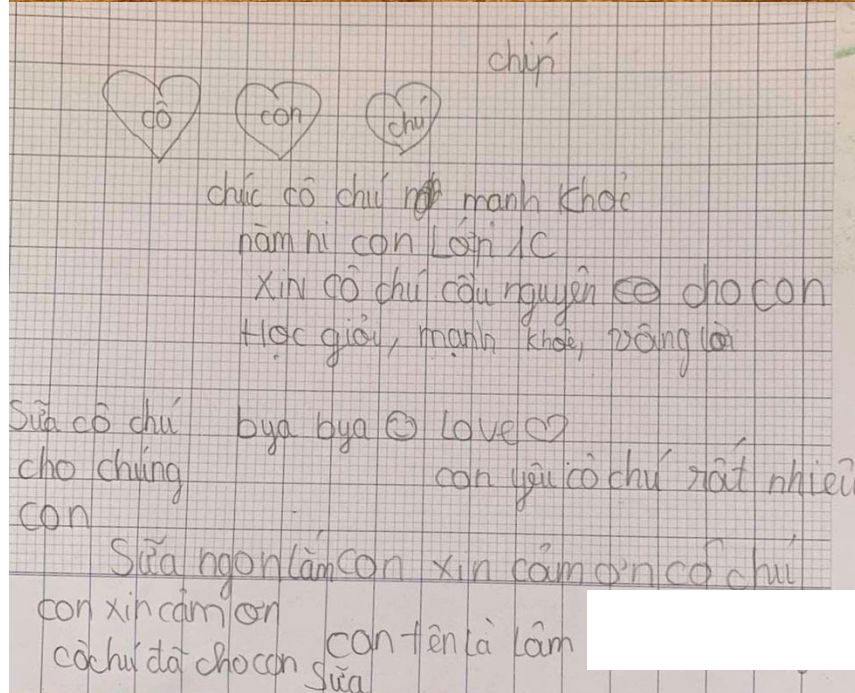 chín
cô con chú
chúc cô chú mạnh khoẻ
năm ni con Lớn 1C
XIN cô chú cầu nguyên cho con
Học giỏi, mạnh khoẻ, vâng lời
Sữa cô chú bya bya Love
cho chúng con yêu cô chú rất nhiều
con
Sữa ngon lắm con xin cảm ơn cô chú
con xin cảm ơn
cô chú đã cho con sữa
con tên là Lâm